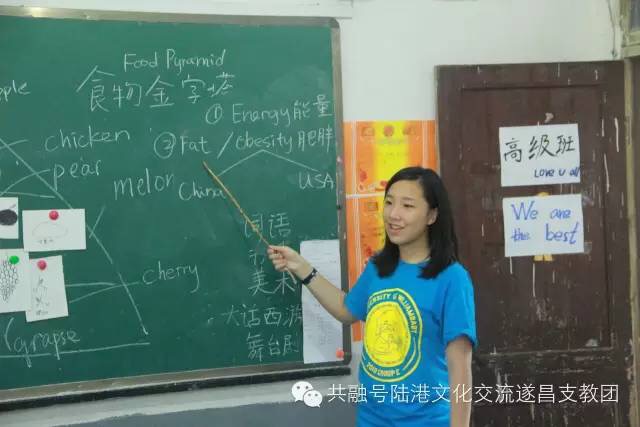 Food Pyramid
食物金字塔
① Energy能量
② Fat / Obesity 肥胖
chicken
pear
melon
China
USA
词语
cherry
大话西游
舞台剧
grapse
高级班
Love u all
We are
the best
共融号陆港文化交流遂昌支教团